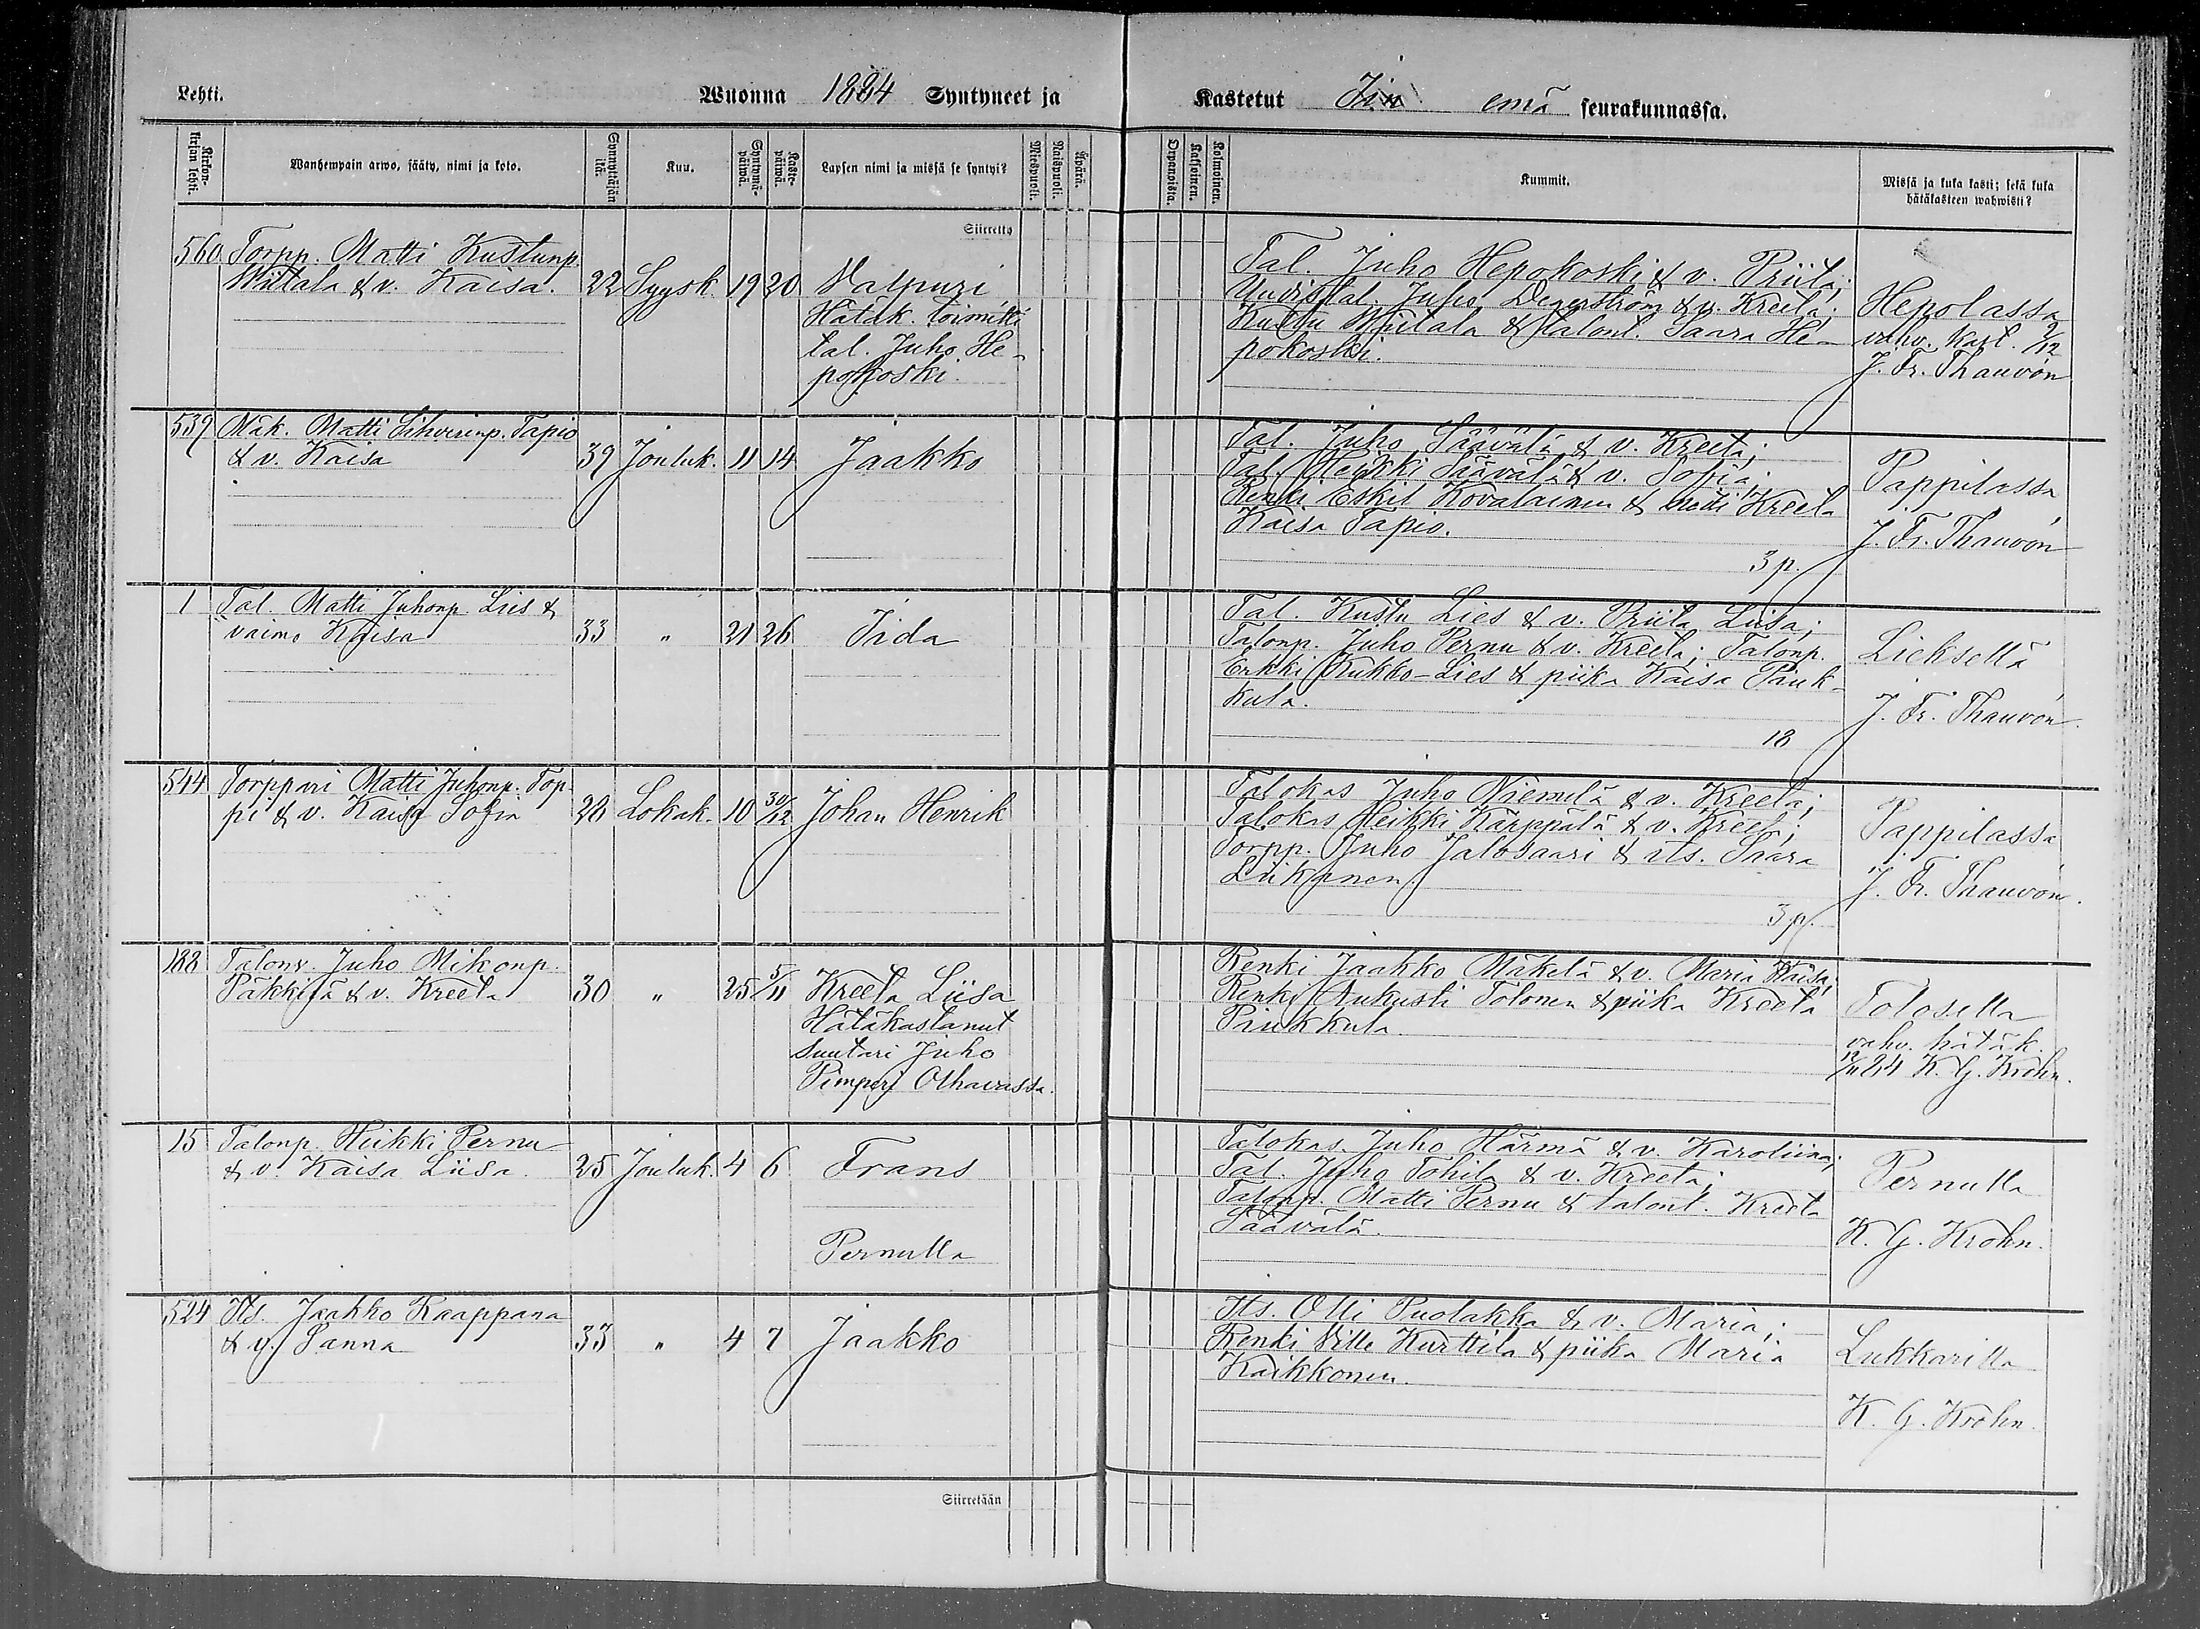 Lehti.
Wuonna 1884 Syntyneet ja
Kastetut Iin emä seurakunnassa.
Kirkonkirjan lehti.
Wanhempain arwo, sääty, nimi ja koto.
Synnyttäjän ikä.
Kuu.
Syntymäpäiwä.
Kastepäiwä.
Lapsen nimi ja missä se syntyi?
Miespuoli.
Naispuoli.
Äpärä.
Orpanoista.
Kaksoinen.
Kolmoinen.
Kummit.
Missä ja kuka kasti; sekä kuka
hätäkasteen wahwisti?
Siirretty
560 Torpp. Matti Kustunp.
Wiitala & v. Kaisa. 22 Syysk. 19 20 Valpuri
Hätäk. toimitti
tal. Juho He-
pokoski.
Tal. Juho Hepokoski & v. Priita;
Uudistal. Juho Degerström & v. Kreeta;
Kustu Wiitala & talont. Saara He-
pokoski.
Hepolassa
vahv. kast.
J. Fr. Thauvón
539 Mäk. Matti Tapio
& v. Kaisa 39 Jouluk. 11 14 Jaakko
Tal. Juho Säävälä & v. Kreeta;
Tal. Heikki Säävälä & v. Sofia;
Renki Eskil Kovalainen & neiti Kreeta
Kaisa Tapio.
3 p.
Pappilassa
J. Fr. Thauvón
1 Tal. Matti Juhonp. Lies &
vaimo Kaisa 33 " 21 26 Iida
Tal. Kustu Lies & v. Priita Liisa;
Talonp. Juho Pernu & v. Kreeta; Talonp.
Erkki Kukko-Lies & piika Kaisa Pauk-
kula.
18
Lieksellä
J. Fr. Thauvón.
544 Torppari Matti Juhonp. Top-
pi & v. Kaisa Sofia 28 Lokak. 10 30/12 Johan Henrik
Talokas Juho Niemelä & v. Kreeta;
Talokas Heikki Kärppälä & v. Kreeta;
Torpp. Juho Jalosaari & its. Saara
Liikanen
3 p.
Pappilassa
J. Fr. Thauvón.
188 Talonv. Juho Mikonp.
Päkkilä & v. Kreeta 30 " 25 5/11 Kreeta Liisa
Hätäkastanut
suutari Juho
Pimperi Olhavassa.
Renki Jaakko Mäkelä & v. Maria Kaisa;
Renki Aukusti Tolonen & piika Kreeta
Piukkula.
Tolosella
vahv. hätäk.
12/11 84 K. G. Krohn.
15 Talonp. Heikki Pernu
& v. Kaisa Liisa. 25 Jouluk. 4 6 Frans
Pernulla
Talokas Juho Härmä & v. Karoliina;
Tal. Juho Tohila & v. Kreeta;
Talonp. Matti Pernu & talont. Kreeta
Säävälä.
Pernulla
K. G. Krohn.
524 Its. Jaakko Kaappana
& v. Sanna 33 " 4 7 Jaakko
Its. Olli Puolakka & v. Maria;
Renki Ville Kurttila & piika Maria
Kaikkonen.
Lukkarilla
K. G. Krohn.
Siirretään